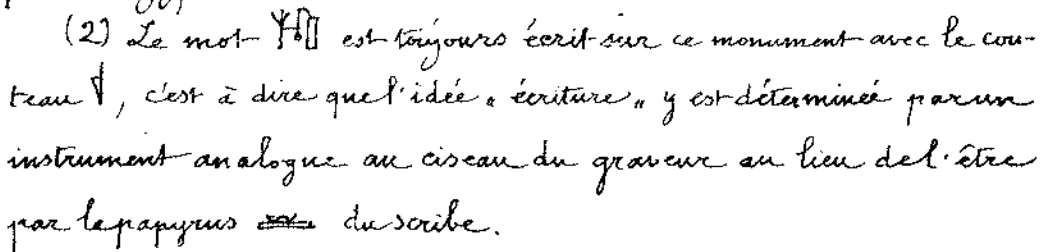 (2) Le mot est toujours écrit sur ce monument avec le cou-
teau , c'est à dire que l'idée „ écriture „ y est déterminée par un
instrument analogue au ciseau du graveur au lieu de l'être
par le papyrus du scribe.